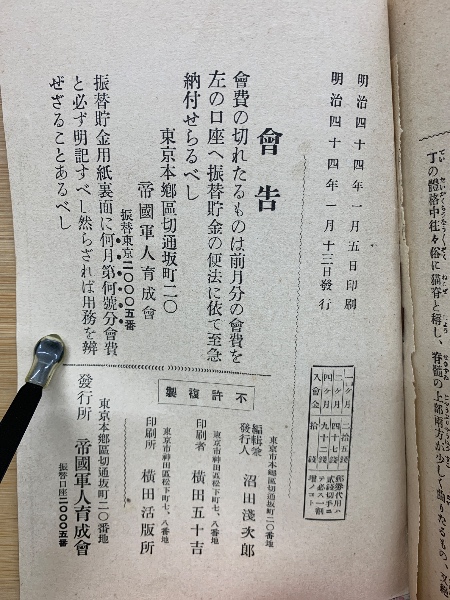 明治四十四年一月五日印刷
明治四十四年一月十三日發行
會告
會費の切れたるものは前月分の會費を
左の口座へ振替貯金の便法に依て至急
納付せらるべし
東京本鄕區切通坂町二〇
帝國軍人育成會
振替東京二〇〇〇五番
振替貯金用紙裏面に何月第何號分會費
と必ず明記すべし然らざれば用務を辨
ぜざることあるべし
一ヶ月 二拾五錢
二ヶ月 四十七錢
四ヶ月 九十二錢
入會金 拾錢
不許複製
東京市本鄕區切通坂町二〇番地
編輯兼發行人 沼田淺次郎
東京市神田區松下町七、八番地
印刷者 横田五十吉
東京市神田區松下町七、八番地
印刷所 横田活版所
東京本鄕區切通坂町二〇番地
發行所 帝國軍人育成會
振替口座二〇〇〇五番
丁の體格中往々俗に猫脊と稱し、脊髓の上部兩方が少しく曲りたるもの、